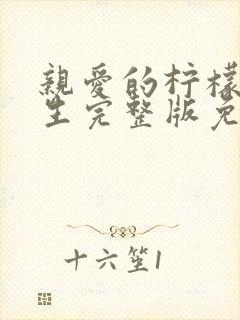 親愛的柠檬
生完整版免
十六笙1